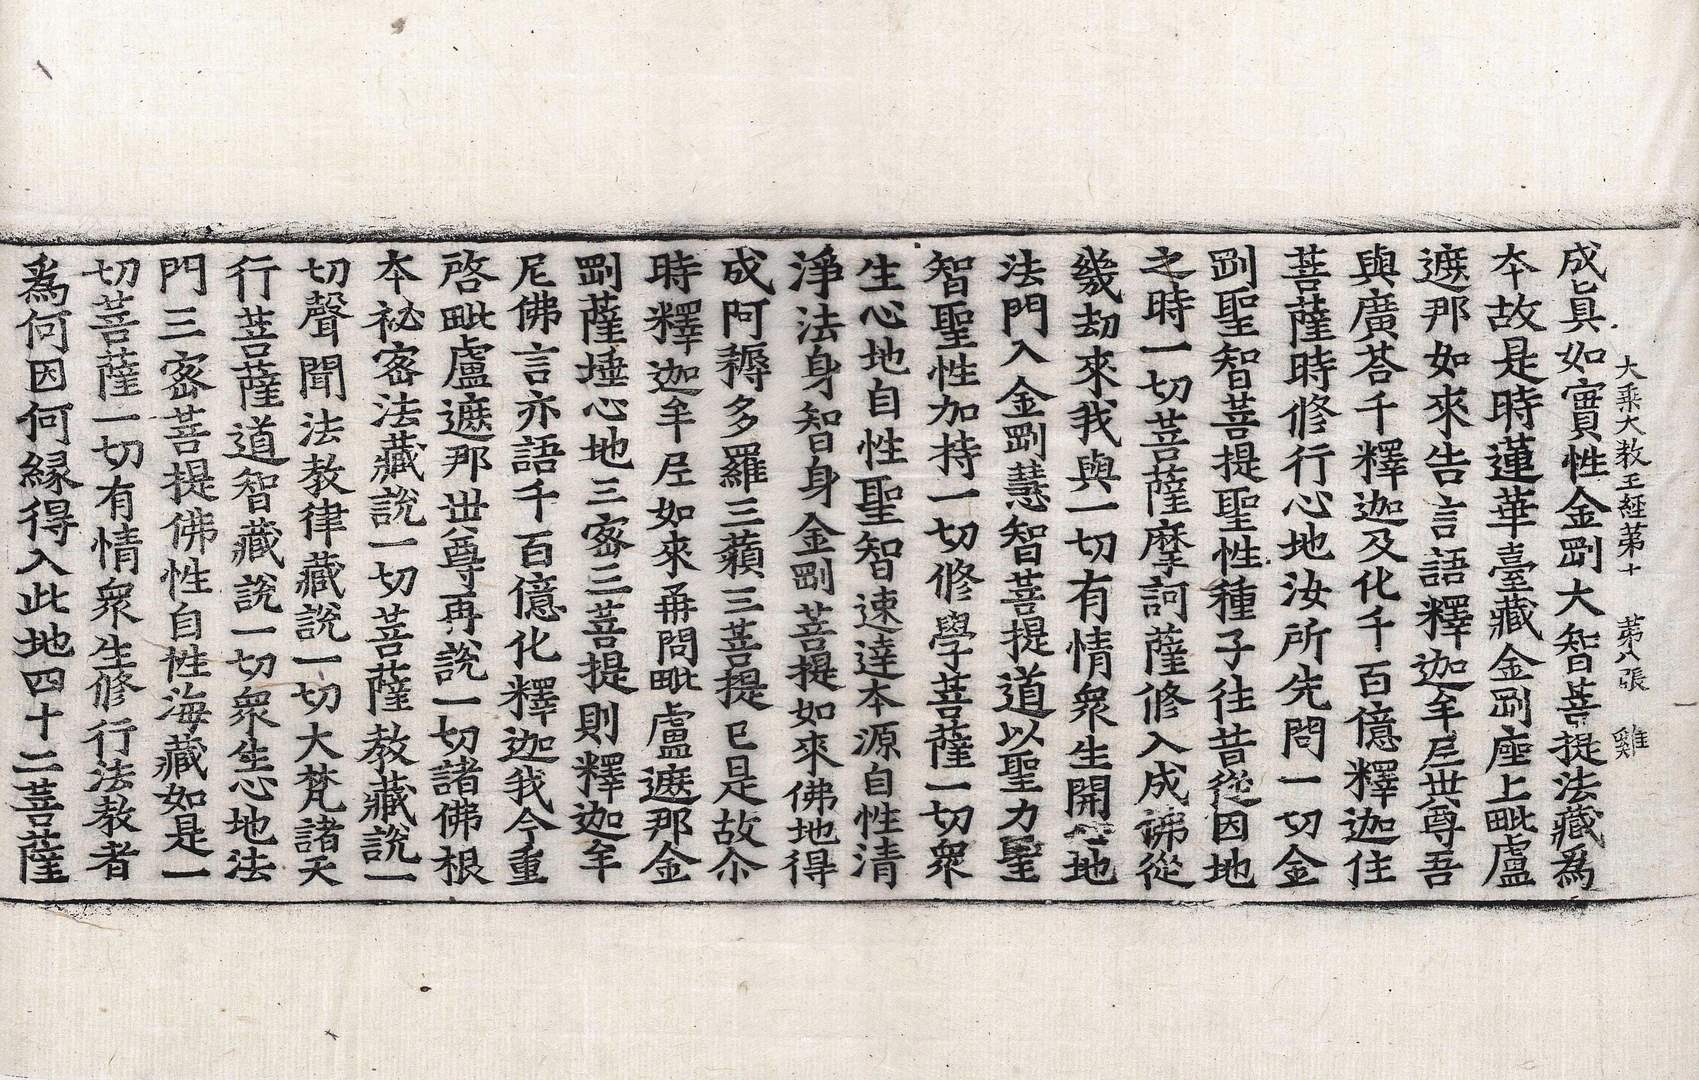 大乘大教王經第十　第八張　雞
成眞如實性金剛大智菩提法藏為
夲故是時蓮華臺藏金剛座上毗盧
遮那如來告言語釋迦牟尼世尊吾
與廣荅千釋迦及化千百億釋迦住
菩薩時修行心地汝所先問一切金
剛聖智菩提聖性種子往昔從因地
之時一切菩薩摩訶薩修入成彿從
幾劫來我與一切有情衆生開地
法門入金剛慧智菩提道以聖力聖
智聖性加持一切修學菩薩一切衆
生心地自性聖智速達本源自性清
淨法身智身金剛菩提如來佛地得
成阿耨多羅三藐三菩提已是故尒
時釋迦牟尼如來再問毗盧遮那金
剛薩埵心地三密三菩提則釋迦牟
尼佛言亦語千百億化釋迦我今重
啓毗盧遮那世尊再說一切諸佛根
夲祕密法藏說一切菩薩教藏說一
切聲聞法教律藏說一切大梵諸天
行菩薩道智藏說一切衆生心地法
門三密菩提佛性自性海藏如是一
切菩薩一切有情衆生修行法教者
爲何因何緣得入此地四十二菩薩